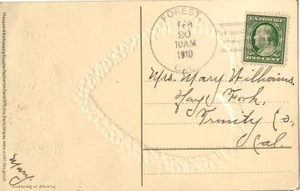 FOREST,
FEB
20
10AM
1910
CAL.
U.S. POSTAGE
ONE CENT
Mrs. Mary Williams
Hay Fork,
Trinity Co,
Cal.
Mary